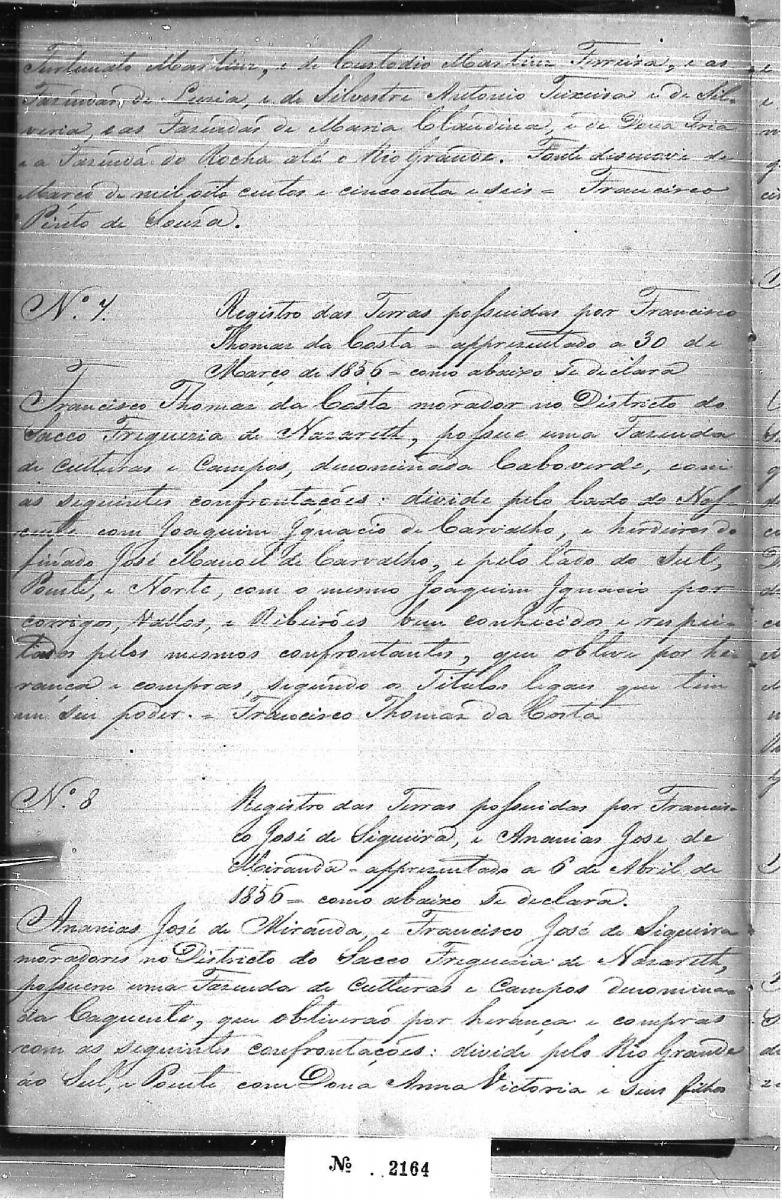 Fortunato Martins, e de Custodio Martins Ferreira, e as
Fazendas, de Luzia, e de Silvestre Antonio Teixeira e de Sil-
veria, e as Fazendas de Maria Claudina, e de Dona
e a Fazenda do Rocha até o Rio Grande. Ponte desenove de
Março de mil, oito centos e cincoenta e seis = Francisco
Pinto de Souza.
Nº 7.
Registro das Terras possuidas por Francisco
Thomaz da Costa = apprezentado a 30 de
Março de 1856 = como abaixo se declara
Francisco Thomaz da Costa morador no Districto do
Sacco Freguezia de Nazareth, possue uma Fazenda
de culturas e Campos, denominada Caboverde, com
as seguintes confrontações: divide pelo lado do Nas-
cente com Joaquim Ignacio de Carvalho, e herdeiros do
finado José Manoel de Carvalho, e pelo lado do Sul,
Poente, e Norte, com o mesmo Joaquim Ignacio por
corrigos, Vallos, e Ribeirões bem conhecidos e respei-
tados pelos mesmos confrontantes, que obteve por he-
rança e compras, segundo os Titulos legaes que tem
em seu poder. = Francisco Thomaz da Costa
Nº 8
Registro das Terras possuidas por Francis-
co José de Siqueira, e Ananias José de
Miranda = apprezentado a 6 de Abril de
1856 = como abaixo se declara.
Ananias José de Miranda, e Francisco José de Siqueira
moradores no Districto do Sacco Freguezia de Nazareth,
possuem uma Fazenda de culturas e campos denomina-
da Caquente, que obtiverão por herança e compras
com as seguintes confrontações: divide pelo Rio Grande
ao Sul, e Poente com Dona Anna Victoria e seus filhos
Nº 2164